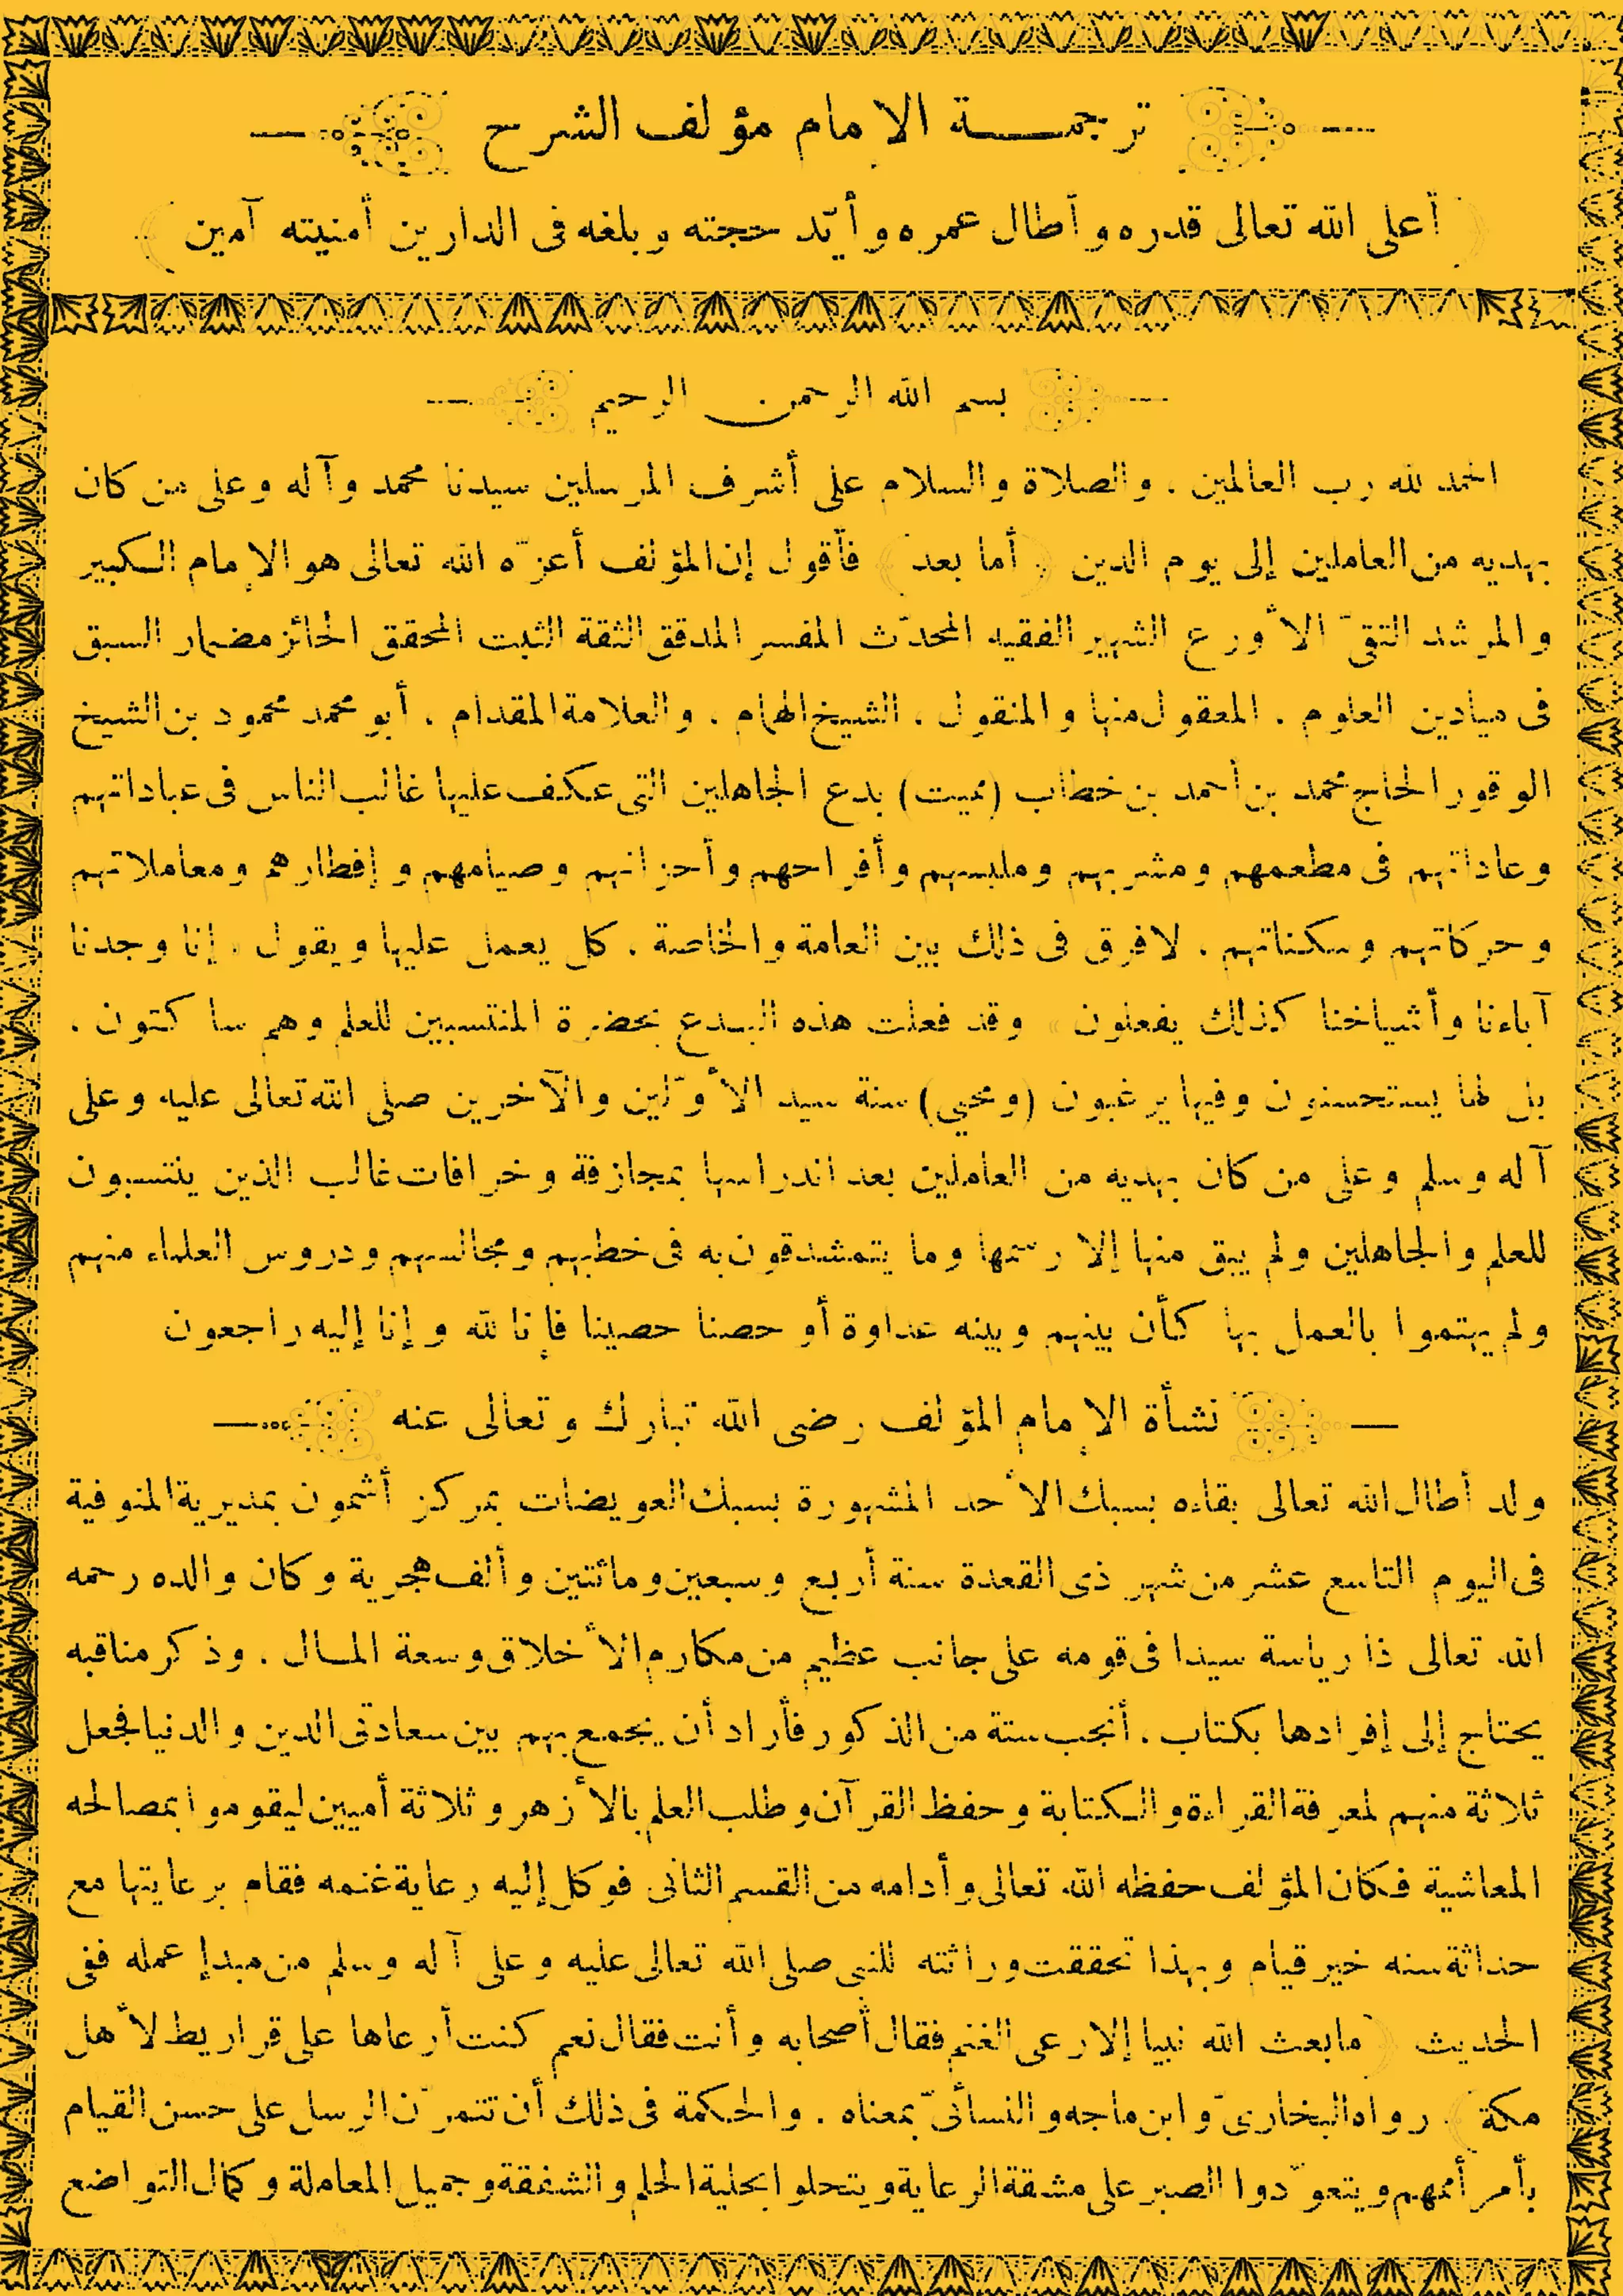 ترجمة الإمام مؤلف الشرح
أعلى الله تعالى قدره وأطال عمره وأيّد حجته وبلغه فى الدارين أمنيته آمين
بسم الله الرحمن الرحيم
الحمد لله رب العالمين . والصلاة والسلام على أشرف المرسلين سيدنا محمد وآله وعلى من كان
بهديه من العاملين إلى يوم الدين . (أما بعد) فأقول إن المؤلف أعزّه الله تعالى هو الإمام الكبير
والمرشد التقىّ الأورع الشهير الفقيه المحدّث المفسر المدقق الثقة الثبت المحقق الحائز مضمار السبق
فى ميادين العلوم . المعقول منها والمنقول . الشيخ الهمام . والعلامة المقدام . أبو محمد محمود بن الشيخ
الوقور الحاج محمد بن أحمد بن خطاب (مميت) بدع الجاهلين التى عكف عليها غالب الناس فى عباداتهم
وعاداتهم فى مطعمهم ومشربهم وملبسهم وأفراحهم وأحزانهم وصيامهم وإفطارهم ومعاملاتهم
وحركاتهم وسكناتهم . لا فرق فى ذلك بين العامة والخاصة . كل يعمل عليها ويقول « إنا وجدنا
آباءنا وأشياخنا كذلك يفعلون » وقد فعلت هذه البدع بحضرة المنتسبين للعلم وهم ساكتون .
بل لها يستحسنون وفيها يرغبون (ومحيي) سنة سيد الأوّلين والآخرين صلى الله تعالى عليه وعلى
آله وسلم وعلى من كان بهديه من العاملين بعد اندراسها بمجازفة وخرافات غالب الذين ينتسبون
للعلم والجاهلين ولم يبق منها إلا رسمها وما يتمشدقون به فى خطبهم ومجالسهم ودروس العلماء منهم
ولم يهتموا بالعمل بها كأن بينهم وبينه عداوة أو حصنا حصينا فإنا لله وإنا إليه راجعون
نشأة الإمام المؤلف رضى الله تبارك وتعالى عنه
ولد أطال الله تعالى بقاءه بسبك الأحد المشهورة بسبك العويضات بمركز أشمون بمديرية المنوفية
فى اليوم التاسع عشر من شهر ذى القعدة سنة أربع وسبعين ومائتين وألف هجرية وكان والده رحمه
الله تعالى ذا رياسة سيدا فى قومه على جانب عظيم من مكارم الأخلاق وسعة المال . وذكر مناقبه
يحتاج إلى إفرادها بكتاب . أنجب ستة من الذكور فأراد أن يجمع بهم بين سعادتى الدين والدنيا فجعل
ثلاثة منهم لمعرفة القراءة والكتابة وحفظ القرآن وطلب العلم بالأزهر وثلاثة أميين ليقوموا بمصالحه
المعاشية فكان المؤلف حفظه الله تعالى وأدامه من القسم الثانى فوكل إليه رعاية غنمه فقام برعايتها مع
حداثة سنه خير قيام وبهذا تحققت وراثته للنبى صلى الله تعالى عليه وعلى آله وسلم من مبدإ عمله ففى
الحديث (ما بعث الله نبيا إلا رعى الغنم فقال أصحابه وأنت فقال نعم كنت أرعاها على قراريط لأهل
مكة) . رواه البخارىّ وابن ماجه والنسائىّ بمعناه . والحكمة فى ذلك أن تتمرّن الرسل على حسن القيام
بأمر أممهم ويتعوّدوا الصبر على مشقة الرعاية ويتحلوا بحلية الحلم والشفقة وجميل المعاملة وكمال التواضع